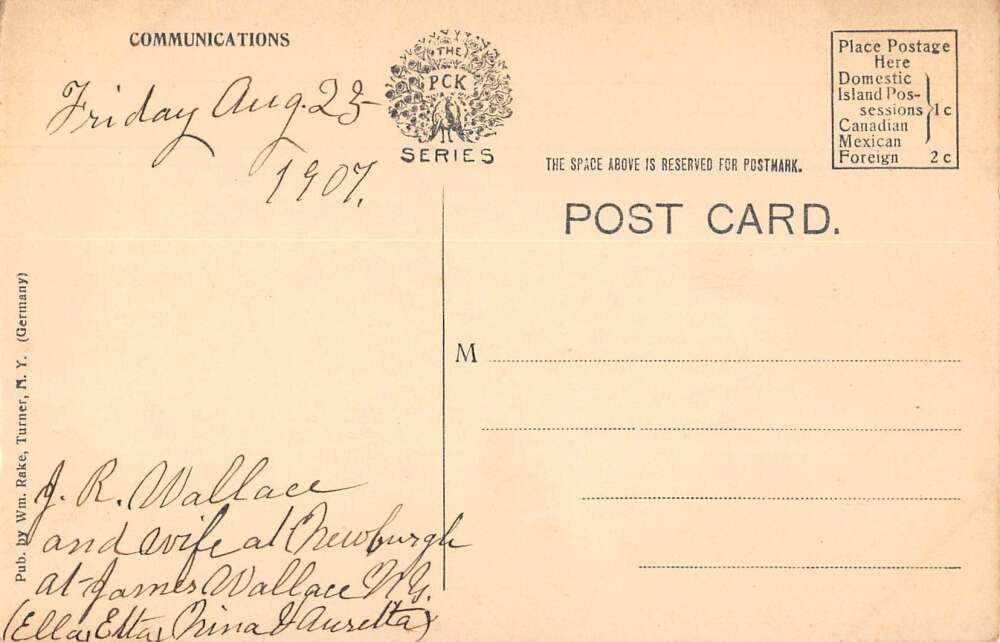 COMMUNICATIONS
Friday Aug. 23-
1907.
THE
PCK
SERIES
Place Postage
Here
Domestic
Island Pos-
sessions
Canadian
Mexican
1c
Foreign 2c
THE SPACE ABOVE IS RESERVED FOR POSTMARK.
POST CARD.
M
Pub. by Wm. Rake, Turner, N. Y. (Germany)
J. R. Wallace
and wife at Newburgh
at James Wallace N.Y.
(Ella, Etta, Nina & Auretta)